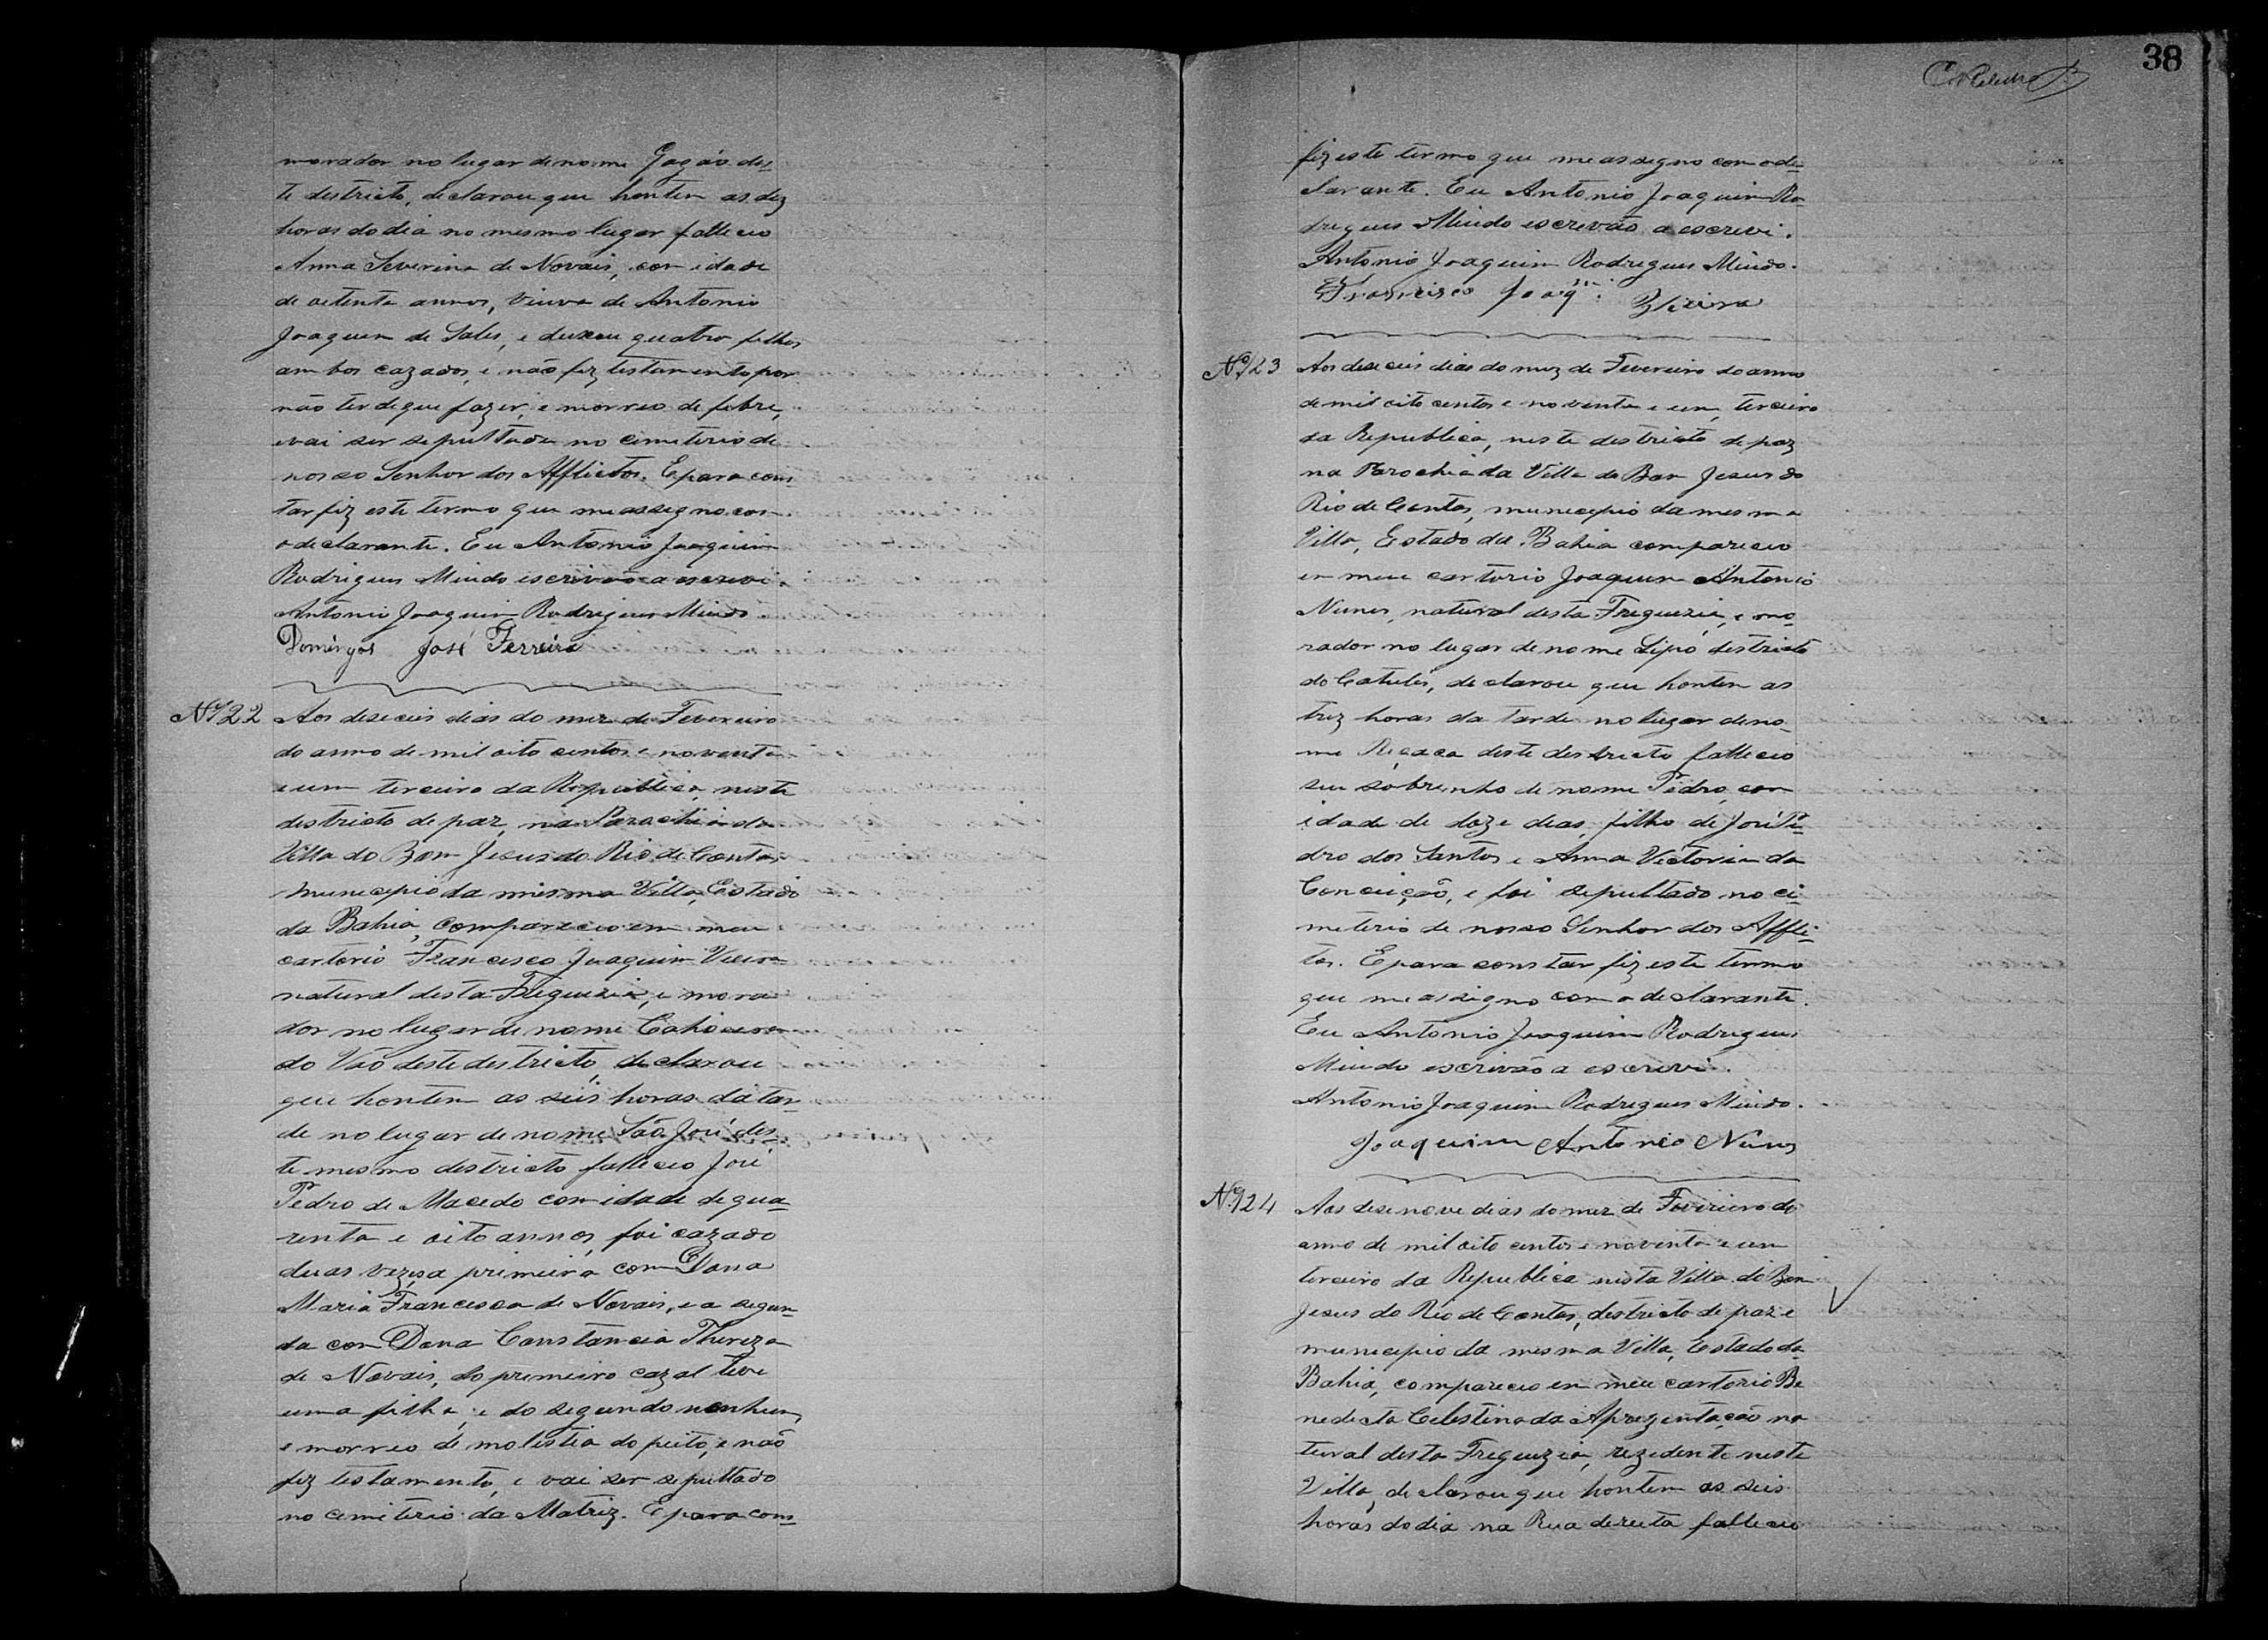 morador no lugar de nome Gagáo des-
te destricto, declarou que hontem as dez
horas do dia no mesmo lugar falleceo
Anna Severina de Novais, com idade
de oitenta annos, viuva de Antonio
Joaquim de Sales, e deixou quatro filhos
ambos cazados, e não fez testamento por
não ter de que fazer, e morreo de febre,
e vai ser sepultada no cimeterio de
nosso Senhor dos Afflictos. E para cons-
tar fiz este termo que me assigno com
o declarante. Eu Antonio Joaquim
Rodrigues Miudo escrivão a escrevi.
Antonio Joaquim Rodrigues Miudo
Domingos José Ferreira
Nº 122 Aos deseceis dias do mez de Fevereiro
do anno de mil oito centos e noventa
e um terceiro da Republica, neste
destricto de paz, na Parochia da
Villa do Bom Jesus do Rio de Contas
municipio da mesma Villa, Estado
da Bahia, compareceo em meu
cartorio Francisco Joaquim Vieira
natural desta Freguezia, e mora
dor no lugar de nome Cahoeira
do Vão deste destricto, declarou
que hontem as seis horas da tar-
de no lugar de nome São José des-
te mesmo destricto falleceo José
Pedro de Macedo com idade de qua-
renta e oito annos, foi cazado
duas vezes, a primeira com Dona
Maria Francisca de Novais, e a segun-
da com Dona Constancia Thereza
de Novais, do primeiro cazal teve
uma filha, e do segundo nenhum,
e morreo de molestia do peito, e não
fez testamento, e vai ser sepultado
no cemiterio da Matriz. E para cons-
38
fiz este termo que me assigno com o de-
clarante. Eu Antonio Joaquim Ro-
drigues Miudo escrevão a escrevi.
Antonio Joaquim Rodrigues Miudo.
Francisco Joaqm. Vieira
Nº 123 Aos deseceis dias do mez de Fevereiro do anno
de mil oito centos e noventa e um, terceiro
da Republica, neste destricto de paz
na Parochia da Villa do Bom Jesus do
Rio de Contas, municipio da mesma
Villa, Estado da Bahia compareceo
em meu cartorio Joaquim Antonio
Nunes, natural desta Freguezia, e mo-
rador no lugar de nome Sipó destricto
do Catulés, declarou que hontem as
trez horas da tarde no lugar de no-
me deste destricto falleceo
seu sobrinho de nome Pedro, com
idade de doze dias, filho de José Pe-
dro dos Santos e Anna Victoria da
Conceição, e foi sepultado no ci-
meterio de nosso Senhor dos Affli-
tos. E para constar fiz este termo
que me assigno com o declarante.
Eu Antonio Joaquim Rodrigues
Miudo escrivão a escrevi.
Antonio Joaquim Rodrigues Miudo.
Joaquim Antonio Nunes
Nº 124 Aos desenove dias do mez de Fevereiro do
anno de mil oito centos e noventa e um
terceiro da Republica nesta Villa do Bom
Jesus do Rio de Contas, destricto de paz e
municipio da mesma Villa, Estado da
Bahia, compareceo em meu cartorio Be
nedicta Celestina da Aprezentação na
tural desta Freguezia, rezidente neste
Villa, declarou que hontem as seis
horas do dia na Rua dereita falleceo